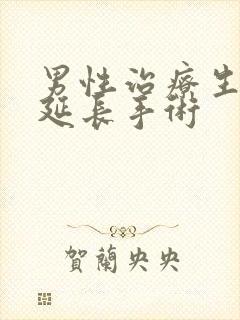 男性治療生
延長手術
賀蘭央央